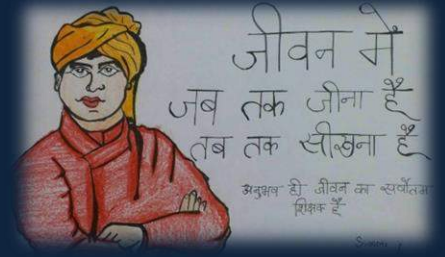 जीवन मे
जब तक जीना है
तब तक सीखना है
अनुभव ही जीवन का सर्वोतम
शिक्षक है